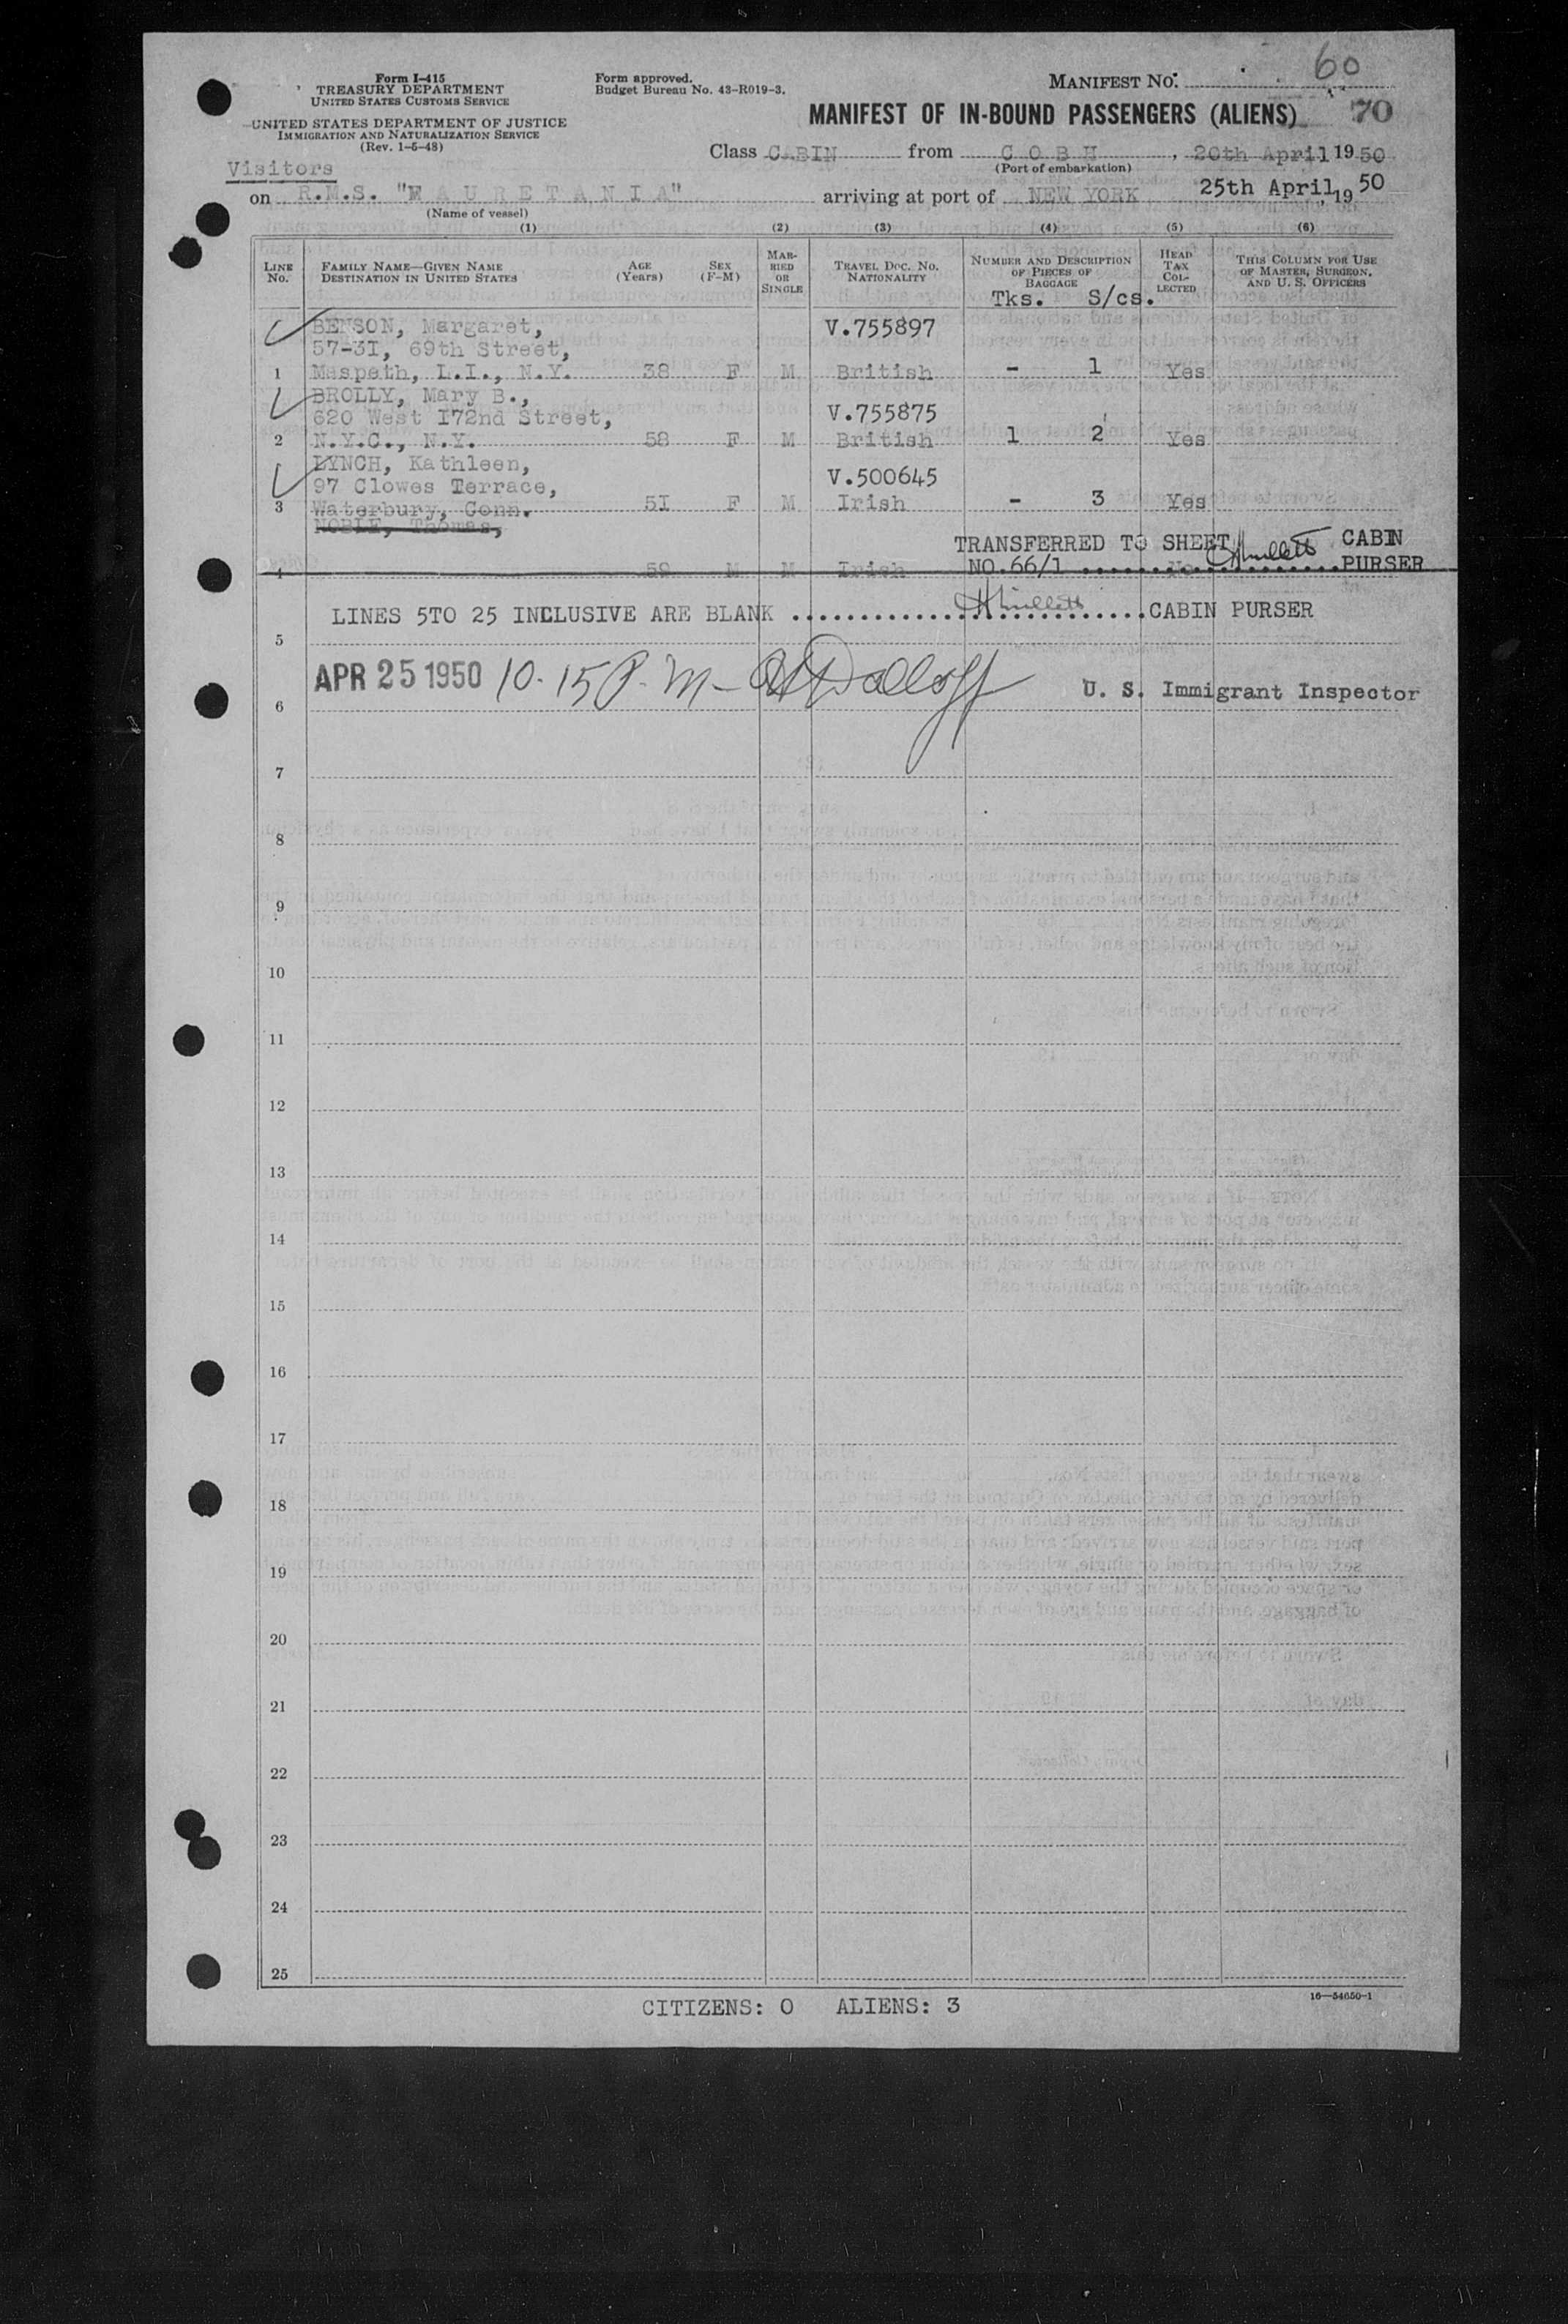 60
Form I-415
TREASURY DEPARTMENT
UNITED STATES CUSTOMS SERVICE
UNITED STATES DEPARTMENT OF JUSTICE
IMMIGRATION AND NATURALIZATION SERVICE
(Rev. 1-5-48)
Form approved.
Budget Bureau No. 43-R019-3.
MANIFEST NO.
MANIFEST OF IN-BOUND PASSENGERS (ALIENS) 70
Visitors
Class CABIN from COBH, 20th April 1950
(Port of embarkation)
on R.M.S. "MAURETANIA" arriving at port of NEW YORK 25th April, 1950
(Name of vessel)
(1) (2) (3) (4) (5) (6)
LINE NO. FAMILY NAME—GIVEN NAME DESTINATION IN UNITED STATES AGE (Years) SEX (F-M) MARRIED OR SINGLE TRAVEL DOC. NO. NATIONALITY NUMBER AND DESCRIPTION OF PIECES OF BAGGAGE HEAD TAX COLLECTED THIS COLUMN FOR USE OF MASTER, SURGEON, AND U. S. OFFICERS
Tks. S/cs.
BENSON, Margaret, V.755897
57-3I, 69th Street,
1 Maspeth, L.I., N.Y. 38 F M British - 1 Yes
BROLLY, Mary B.,
620 West I72nd Street, V.755875
2 N.Y.C., N.Y. 58 F M British 1 2 Yes
LYNCH, Kathleen,
97 Clowes Terrace, V.500645
3 Waterbury, Conn. 5I F M Irish - 3 Yes
NOBLE, Thomas,
TRANSFERRED TO SHEET CABIN
4 59 M M Irish NO.66/1 No PURSER
LINES 5TO 25 INCLUSIVE ARE BLANK CABIN PURSER
5
APR 25 1950 10.15 P.M- U. S. Immigrant Inspector
6
7
8
9
10
11
12
13
14
15
16
17
18
19
20
21
22
23
24
25
CITIZENS: 0 ALIENS: 3
16—54650-1